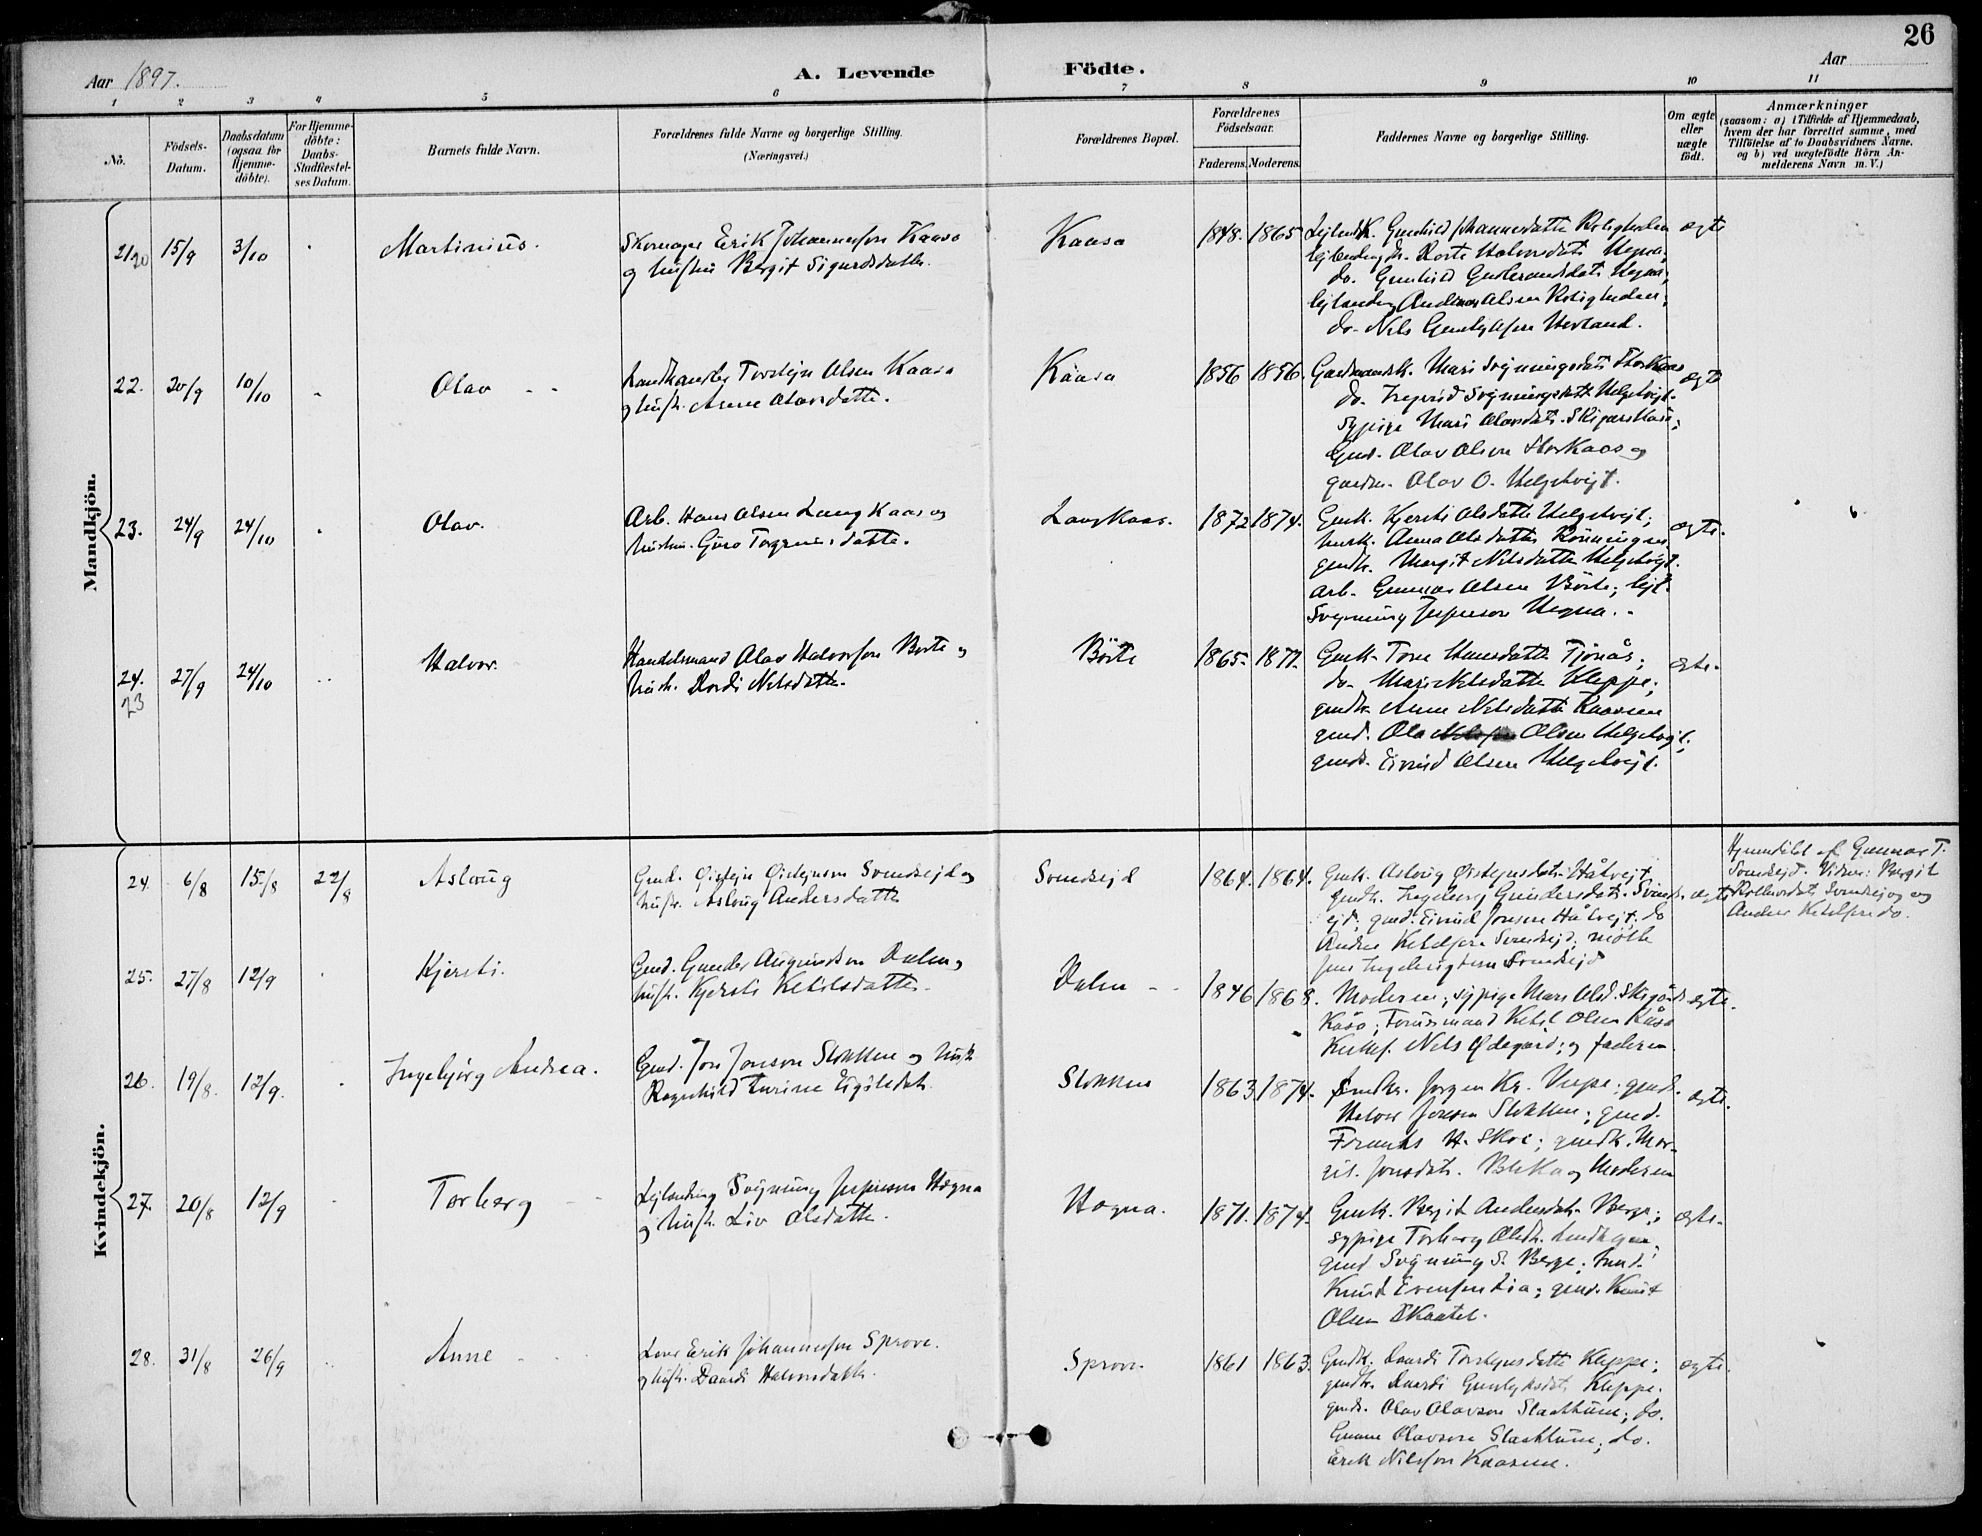 26
Aar 1897.
A. Levende Födte.
Aar
1 2 3 4 5 6 7 8 9 10 11
No.
Födsels-Datum.
Daabsdatum (ogsaa for Hjemme-döbte).
For Hjemme-döbte: Daabs-Stadfæstel-ses Datum.
Barnets fulde Navn.
Forældrenes fulde Navne og borgerlige Stilling. (Næringsvei.)
Forældrenes Bopæl.
Forældrenes Födselsaar.
Faderens. Moderens.
Faddernes Navne og borgerlige Stilling.
Om ægte eller uægte födt.
Anmærkninger
(saasom: a) i Tilfælde af Hjemmedaab,
hvem der har forrettet samme, med
Tilföielse af to Daabsvidners Navne,
og b) ved uægtefödte Börn An-
melderens Navn m. V.)
Mandkjön.
21 20 15/9 3/10 Martinius.
Skomager Erik Johannessen Kaasa
og hustru Bergit Sigurdsdatter.
Kaasa 1848. 1865
Gunhild Johannesdatter
Halvorsdatr Hegna,
do. Gunhild Hegna;
Andreas Olsen
do- Nels Herland.
ægte
22. 20/9 10/10 Olav
Landhandler Torstejn Olsen Kaasa
og hustr. Anne Olavsdatter.
Kaasa 1856 1856.
Gardmandsk. Mari Svgnungsdatr Storkaas
do. Svgnungsdatt Helgetvejt.
Sypige Mari Olavsdatr.
Gmd. Olav Olsen Storkaas og
gardm. Olav O. Helgetvejt.
ægte
23. 24/9 24/10 Olav.
Arb. Hans Olsen Langkaas og
hustru. Guro datter.
Langkaas. 1872 1874.
Gmk. Kjersti Olsdatter Helgetvejt;
husk. Anna Olsdatter Rönningen
gmdk. Margit Nelsdatter Helgetvejt.
arb. Gunnar Olsen Börte; lejl.
Svgnung Jespersen Hegna.
ægte.
24. 23 27/9 24/10 Halvor.
Handelsmand Olav Halvorsen Borte og
hustr. Dordi Nelsdatter.
Börte 1865. 1877.
Gmk. Tone Hansdatter Tjönås;
do. Mari Nelsdatter Kleppe;
gmdk. Anne Nelsdatter Kaasene
gmd. Ola Olsen Helgetvejt;
gmd. Eivind Olsen Helgetvejt.
ægte.
Kvindekjön.
24. 6/8 15/8 22/8 Aslaug
Gmd. Öistejn Öistejnsen Svendsejd og
hustr. Aslaug Andersdatter
Svendsejd 1864. 1864.
Gmk. Aslaug Öistejnsdatr. Håtvejt,
gmdk. Ingeborg Gundersdatr. Svends-
ejd; gmd. Eivind Jonsen Håtvejt; do
Andres Ketelsen Svendsejd;
Svendsejd
ægte
Hjemdöbt af Gunnar T.
Svendsejd. Vidner: Bergit
Svendsejd og
Anders Ketelsen do.
25. 27/8 12/9 Kjersti.
Gmd. Gunder Augundsen Dalen og
hustr. Kjersti Ketelsdatter.
Dalen 1846 1868.
Moderen; sypige Mari Olsd.
Kåsa; Ketel Olsen Kåsa
Nels Ödegård; og faderen.
ægte.
26. 19/8. 12/9. Ingebjörg Andrea.
Gmd. Jon Jonsen Slokken og hustr.
Ragnhild
Stokken 1863 1874.
Jörgen Kr. gmd.
Halvor Jonsen Stokken; gmd.
H. Skoe; gmdk. Mar-
git Jonsdatr. og Moderen
ægte.
27. 20/8 12/9 Torberg
Lejlending Svgnung Jespersen Hegna
og hustr. Liv Olsdatter.
Hegna. 1871. 1874.
Gmk. Bergit Andersdatr. Berge;
sypige Torberg Olsdr.
gmd Svgnung S. Berge;
Knud Evensen Lia; gmd. Knut
Olsen Skaatel.
ægte.
28. 31/8 26/9 Anne
Erik Johannessen Sprove.
og hustr. Daardi Halvorsdatter.
Sprove. 1861 1863.
Gmdk. Daardi Torstejnsdatter Kleppe;
gmdk. Daardi Gunleiksdatr Kleppe.
gmd. Olav Olavsen Slaattune; do.
Gunne Olavsen Slaattune; do.
Erik Nilssen Kaasene.
ægte.